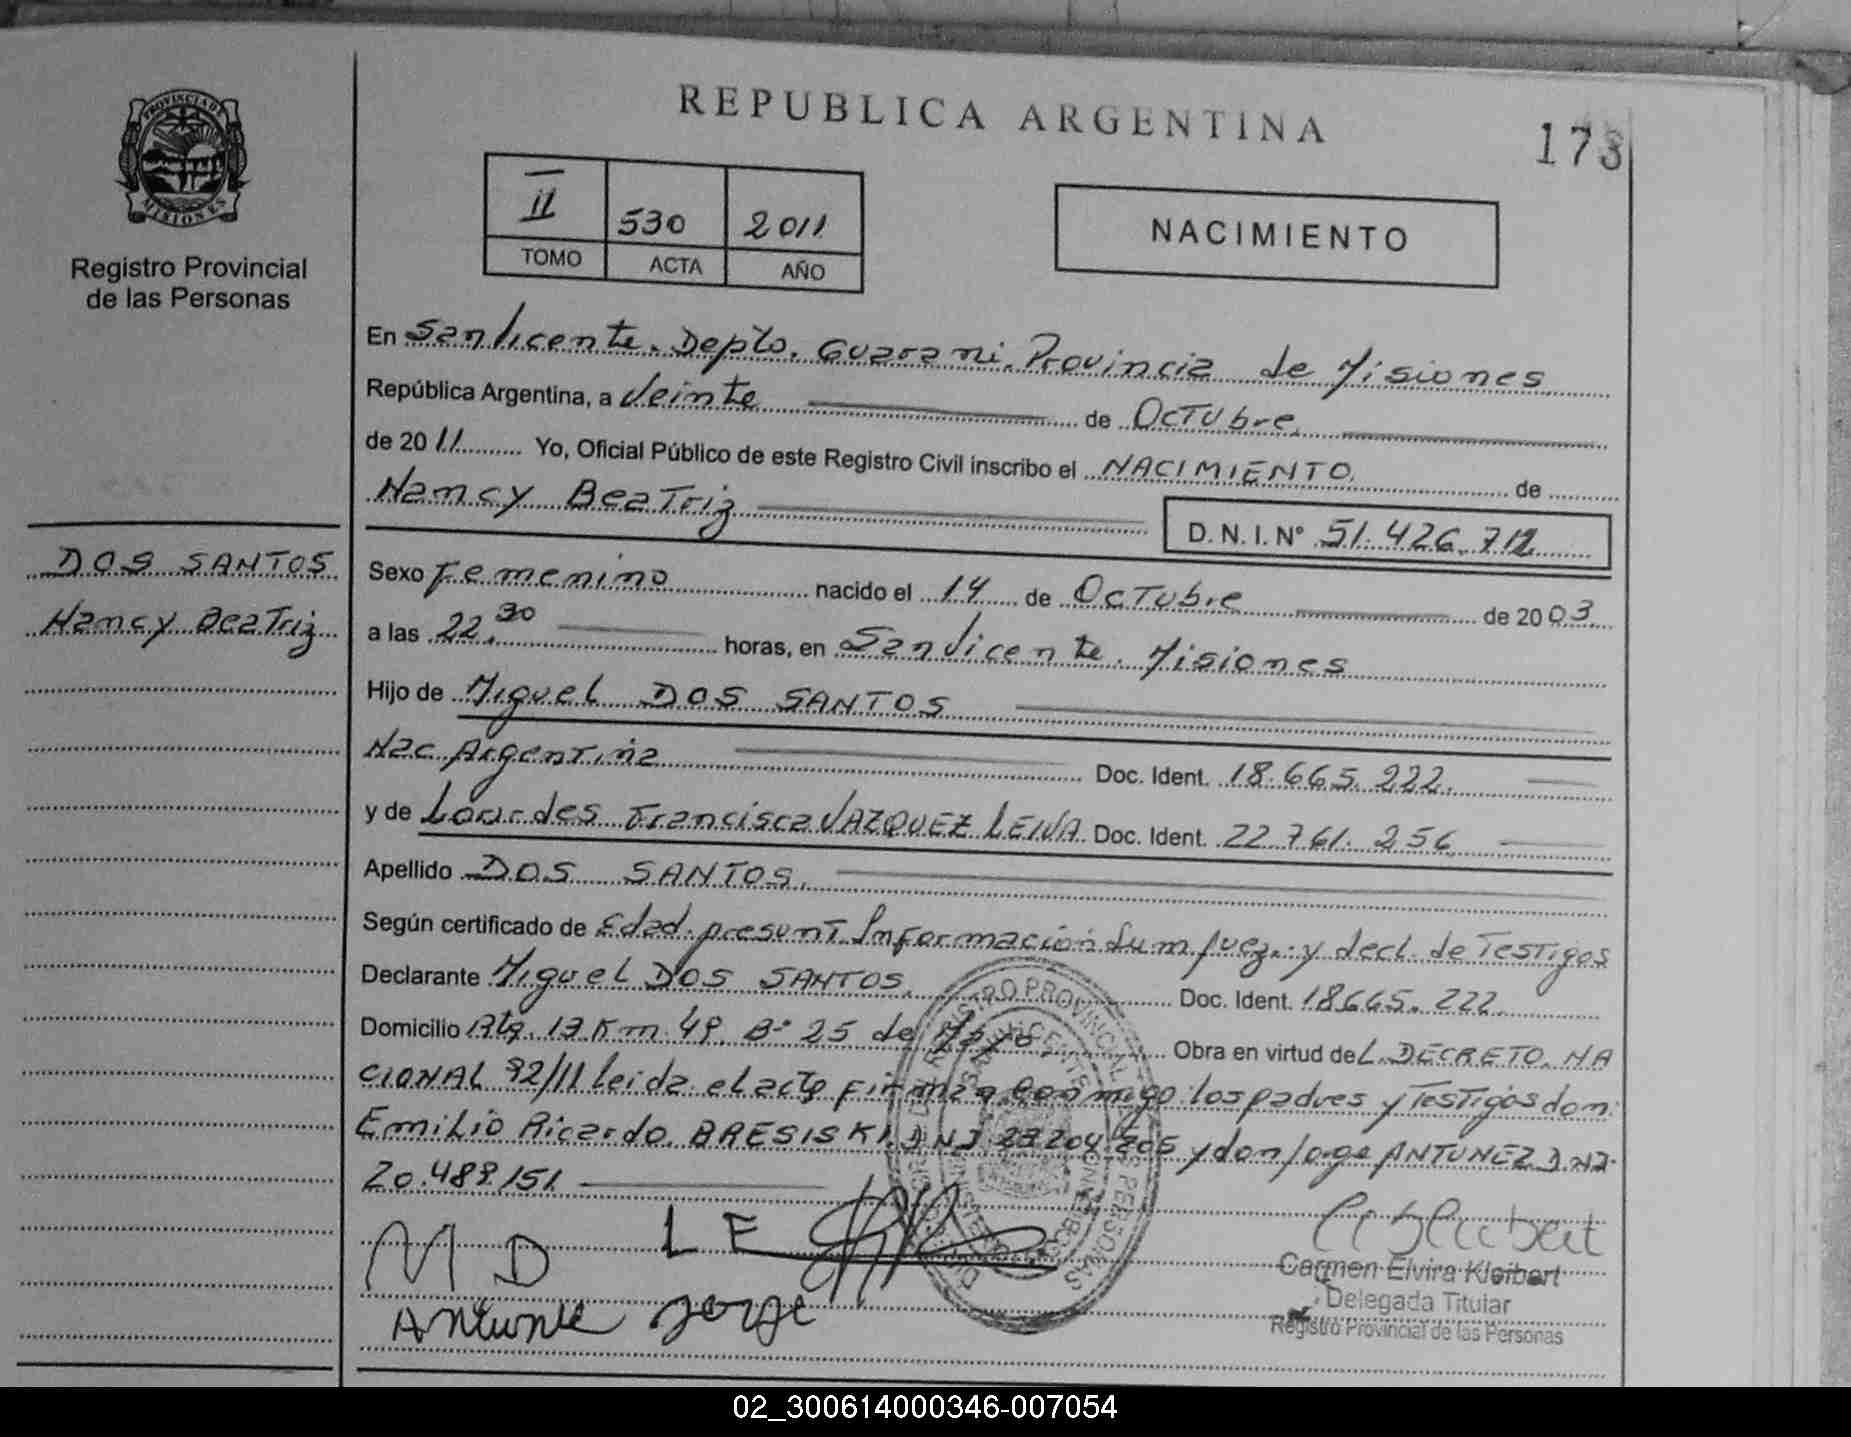 REPUBLICA ARGENTINA
173
PROVINCIA DE
MISIONES
Registro Provincial
de las Personas
II 530 2011
TOMO ACTA AÑO
NACIMIENTO
En San Vicente. Depto. Guarani. Provincia de Misiones
República Argentina, a Veinte de Octubre.
de 2011 Yo, Oficial Público de este Registro Civil inscribo el NACIMIENTO. de
Nancy Beatriz D. N. I. N° 51.426.712
DOS SANTOS
Nancy Beatriz
Sexo Femenino nacido el 14 de Octubre de 2003
a las 22.30 horas, en San Vicente. Misiones
Hijo de Miguel DOS SANTOS
Nac Argentina Doc. Ident. 18.665.222.
y de Lourdes Francisca VAZQUEZ LEIVA Doc. Ident. 22.761.256
Apellido DOS SANTOS.
Según certificado de Edad. presunt Informacion Sum Juez. y decl. de Testigos
Declarante Miguel DOS SANTOS. Doc. Ident. 18665.222.
Domicilio Rta. 13 Km 49. B° 25 de Mayo. Obra en virtud deL DECRETO. NA
CIONAL 92/11 leida el acta firman conmigo los padres y Testigos don
Emilio Ricardo BRESISKI. DNI 23.204.205 y don Jorge ANTUNEZ DNI.
20.489.151.
M D L E
Antunez Jorge
Carmen Elvira Kleibert
Delegada Titular
Registro Provincial de las Personas
02_300614000346-007054